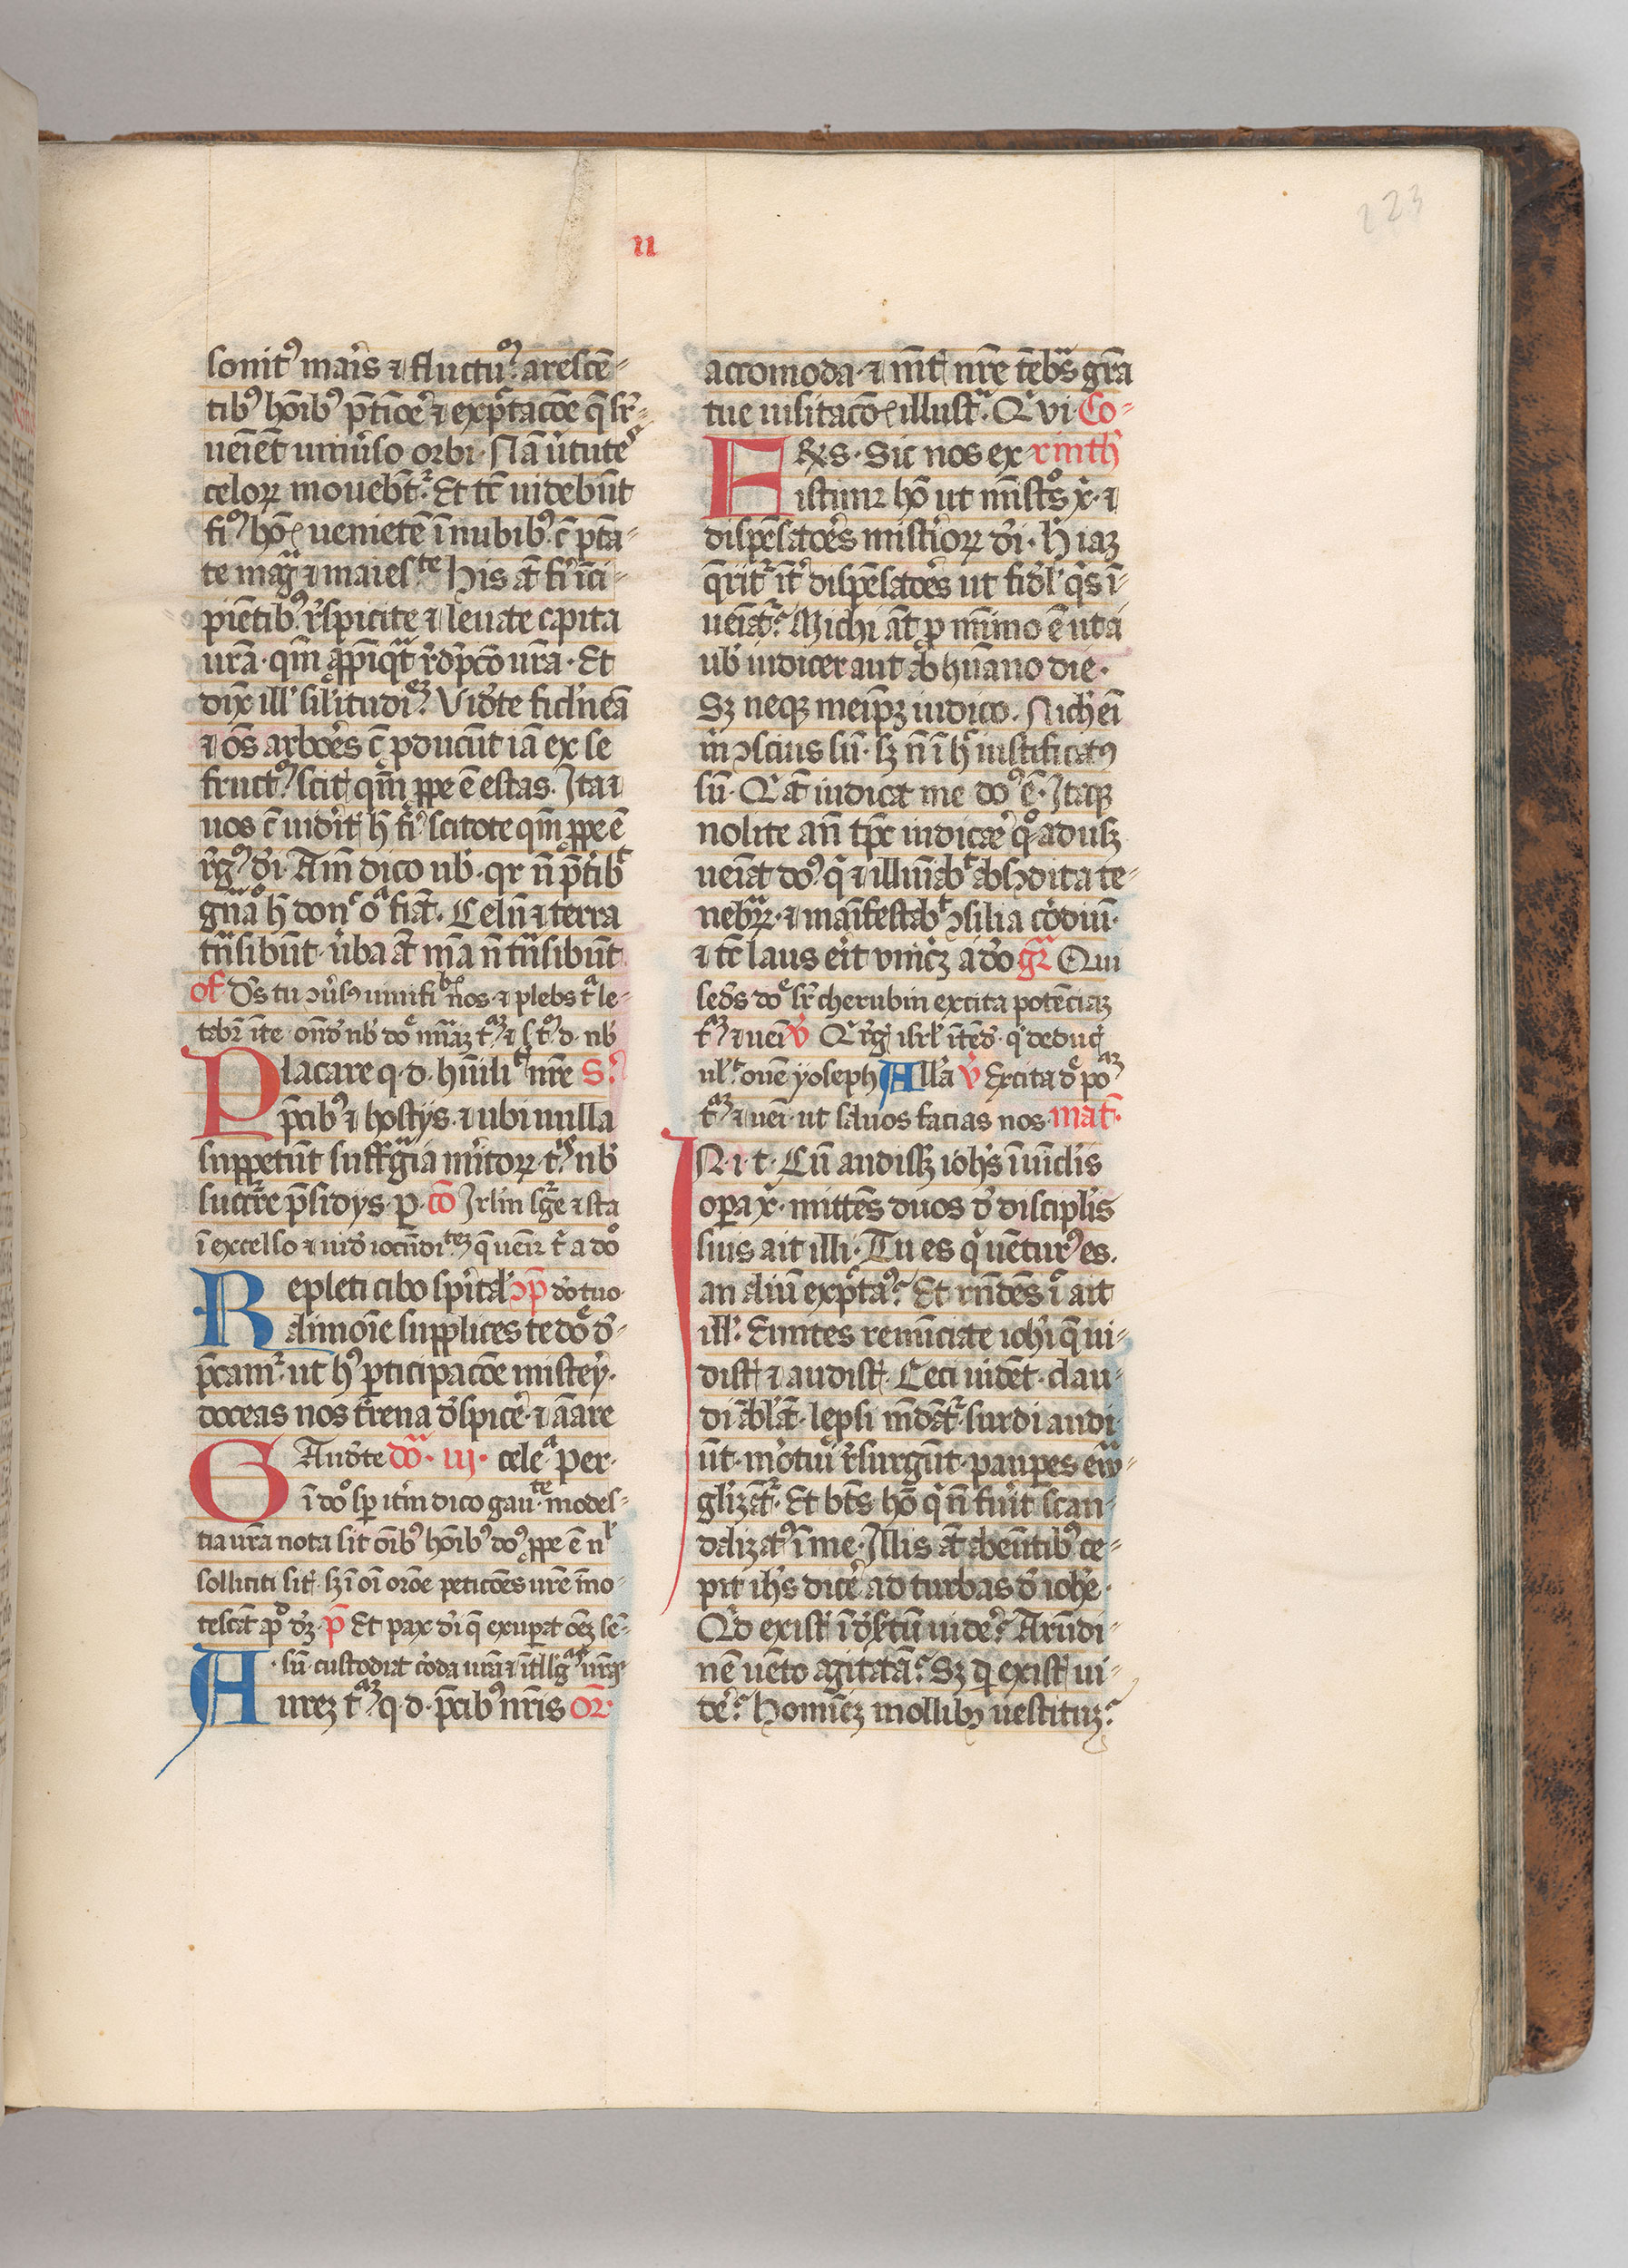 223
ii
sonitꝰ maris ⁊ fluctuū. arescē-
tibꝰ hōibꝰ p̄ timoē ⁊ exp̄ctacōe q̄ sr̄-
ueiēt uniu̓so orbi. Nā u̓tute
celoꝝ mouebūt᷑. Et tc̄ uidebūt
fiꝰ hōis uenietē ī nubibꝰ. c̄ pt̄a-
te mag ⁊ maiestte His at̄ fīi īci-
pietibꝰ. r̓spicite ⁊ leuate capita
urā. qm̄ app̄iq̄t r̓dp̄co urā. Et
dix̄ ill̓ sil̓itudiēꝫ. Vidt̓e ficl̓neā
⁊ oēs arboēs c̄ pducūt iā ex se
fructꝰ. scitī qm̄ ꝓpe ē estas. Ita ⁊
uos c̄ uidit̓is h̄ fi̓. scitote qm̄ ꝓpe ē
r̓gꝰ di̓. Am̄ dico ub̓. qr n̄ p̄t̓ibit
gn̄a h̄ donc oīa fiāt. Celū ⁊ terra
tn̄sibūt. u̓ba at̄ mā n̄ tn̄sibūt
of D̓s tu ꝯu̓sꝰ uiuifibis nos. ⁊ plebs ta le-
tabr̄ ī te. ond̓e nb̓ doe mīaꝫ tā. ⁊ s. t. d. nb̓
Placare q. d. hūili. nr̄e S.
p̄cibꝰ ⁊ hostijs. ⁊ ubi nulla
suppetūt suffr̄gia mi̓toꝝ. tis. nb̓
succr̓re p̄sidijs. p. cō Irl̄m sg̓e ⁊ sta
ī excelso ⁊ uid̓ iocūditateꝫ q̄ uenit t̓ a do
Repleti cibo spi̓tal̓ ꝯp̄ do tuo.
alimoīe supplices te doe d̓-
p̄cam᷑. ut hꝰ pticipacōe mistey.
doceas nos tr̓rena d̓spice̓. ⁊ amare
Gaudt̓e dō. iij. celea. per.
ī do sp̄ itm̓ dico gaute. modes-
tia urā nota sit oībꝰ hōibꝰ dos. ꝓpe ē nl
solliciti sit̓. sꝫ ī oī orōe peticōes urē īno-
tescāt ap̄ dꝫ. p̄ Et pax di̓ q̄ exupat oēꝫ sē-
. sū. custodiat cor̓da urā ⁊ ītll̓gas urās
Aureꝫ tā. q. d. p̄cibꝰ nr̄is or̄.
accomoda. ⁊ mēt̄ nr̄e tēbꝰs gr̄a
tue uisitacōis illustra. Q vi. Co-
FRXS. Sic nos ex rinth̓
istimꝫ hō ut mīstōs x̄. ⁊
dispēsatoēs mist̓ioꝝ di̓. H̓ iaꝫ
q̄rit᷑ īt̓ dispēsatoēs ut fidl̓ qs ī-
ueiāt᷑. Michi at̄ ꝓ mīnimo ē ut a
ub̓ iudicer aut ab huāno die.
Sꝫ neqꝫ meip̄ꝫ iudico. Nich̓ ei
m̄ ꝯscius sū. sꝫ n̄ ī h iustificatꝰ
sū. Q at̄ iudicat me dos ē. Itaqꝫ
nolite an̄ tp̄s iudicae̓ qo adusꝫ
ueiāt dos. q ⁊ illuīabit abscōdita te-
nebraꝝ. ⁊ maīfestabit ꝯsilia cor̓diū.
⁊ tc̄ laus ei̓t vnicꝫ a do gr̄ Qui
sed̓s doe sr̄ cherubin excita potēciaꝫ
tā. ⁊ uei v̓ Q r̓gis isrl̓ ītēd̓. q deducis
ul̓t ouē yoseph Alla v̓ Excita de poaꝫ
tā ⁊ uei. ut saluos facias nos. mat̄.
IN. i. t. Cū audissꝫ ioh̓s ī uīcl̓is
opa x̄. mittēs duos d̓ discipl̓is
suis ait illi. Tu es q uēturꝰ es.
an aliū expc̄tamꝰ. Et rn̄dēs i ait
ill̓. Euntes renūciate ioh̓i q̄ ui-
distis ⁊ audistis. Ceci uidēt. clau-
di abl̓āt. lepsi mūdāt᷑. surdi audi-
ūt. mor̓tui r̓surgūt. paupes ewā-
gl̓izāt᷑. Et bt̄s hō q n̄ fuit̓ scan-
dalizatꝰ ī me. Illis at̄ abeūtibꝰ ce-
pit ih̓s dice̓ ad turbas d̓ ioh̓e.
Qd existis ī d̓s̓tū uidee̓. Arūdi-
nē uēto agitatā. Sꝫ qd existis ui-
dee̓. Homīeꝫ mollibꝫ uestituꝫ.